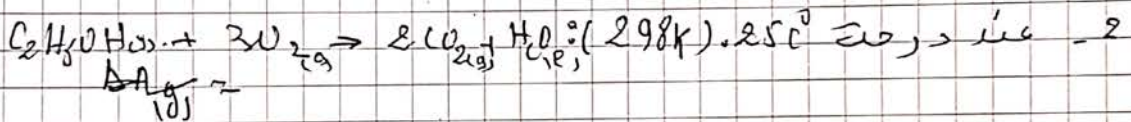 2 - عند درجة 25C° (298K): C2H5OH(l) + 3O2(g) → 2CO2(g) + H2O(l)
Δng(g) =